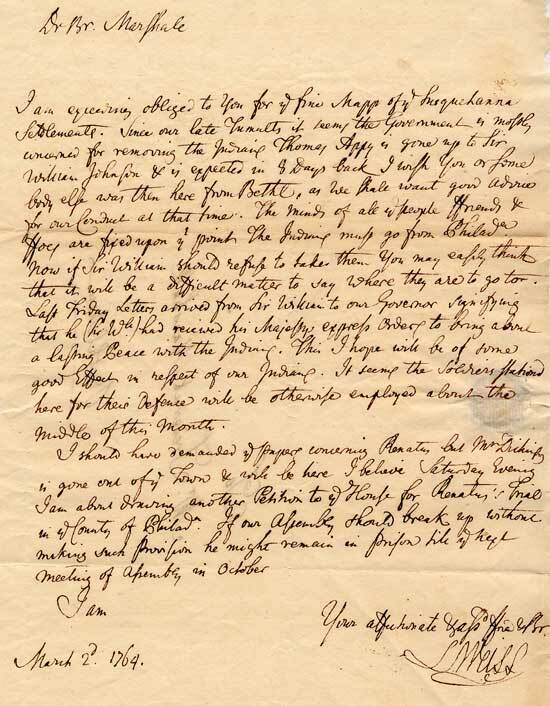 Dr Br. Marshall
I am exceeding obliged to You for ye fine Mapp of ye Susquehanna
Settlements. Since our late Tumults it seems the Government is mostly
concerned for removing the Indians Thomas Apty is gone up to Sir
William Johnson & is expected in 8 Days back I wish You or some
body else was then here from Bethl, as we shall want good advice
for our Conduct at that time. The minds of all ye people ffriends &
ffoes are fixed upon ye point The Indians must go from Philada
Now if Sir William should refuse to take them You may easily think
that it will be a difficult matter to say where they are to go too.
Last Friday Letters arrived from Sir William to our Governor signifying
that he (Sir Wll) had received his Majestys express Orders to bring about
a lasting Peace with the Indians. This I hope will be of some
good Effect in respect of our Indians. It seems the Soldiers stationd
here for their Defence will be otherwise employed about the
middle of this Month.
I should have demanded ye papers concerning Renatus but Mr Dickinson
is gone out of ye Town & will be here I believe Saturday Evening
I am about drawing another Petition to ye House for Renatus's Trial
in ye County of Philada If our Assembly should break up without
making such Provision he might remain in prison till ye next
meeting of Assembly in October
I am
Your affectionate & ffrie & Br.
L Weiss
March 2d. 1764.